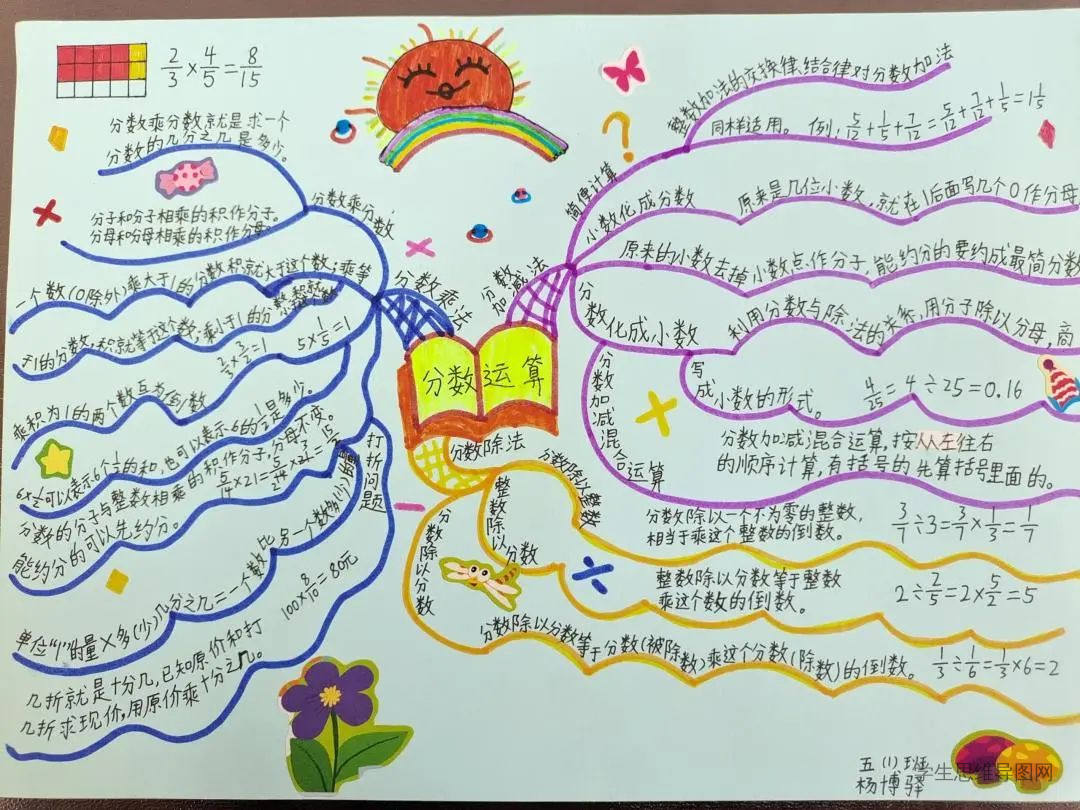 2/3×4/5=8/15
分数乘分数就是求一个
分数的几分之几是多少。
分子和分子相乘的积作分子。
分母和分母相乘的积作分母。
分数乘分数
分数乘法
一个数(0除外)乘大于1的分数积就大于这个数；乘等
于1的分数，积就等于这个数；乘小于1的分
2/3×3/2=1
5×1/5=1
乘积为1的两个数互为倒数
6×1/2可以表示6个1/2的和，也可以表示6的1/2是多少。
分数的分子与整数相乘的积作分子，分母不变。
能约分的可以先约分。
单位“1”的量×多(少)几分之几=一个数比另一个数多(少)
打折问题
几折就是十分几，已知原价和打
几折求现价，用原价乘十分之几。
100×8/10=80元
分数运算
分数加减法
简便计算
整数加法的交换律、结合律对分数加法
同样适用。例：5/12+1/5+7/12=5/12+7/12+1/5=1 1/5
小数化成分数
原来是几位小数，就在1后面写几个0作分母
原来的小数去掉小数点作分子，能约分的要约成最简分数
分数化成小数
利用分数与除法的关系，用分子除以分母，商
写成小数的形式。
4/25=4÷25=0.16
分数加减混合运算
分数加减混合运算，按从左往右
的顺序计算，有括号的先算括号里面的。
分数除法
分数除以整数
分数除以一个不为零的整数，
相当于乘这个整数的倒数。
3/7÷3=3/7×1/3=1/7
整数除以分数
整数除以分数等于整数
乘这个数的倒数。
2÷2/5=2×5/2=5
分数除以分数
分数除以分数等于分数(被除数)乘这个分数(除数)的倒数。
1/3÷1/6=1/3×6=2
五(1)班
杨博驿
学生思维导图网